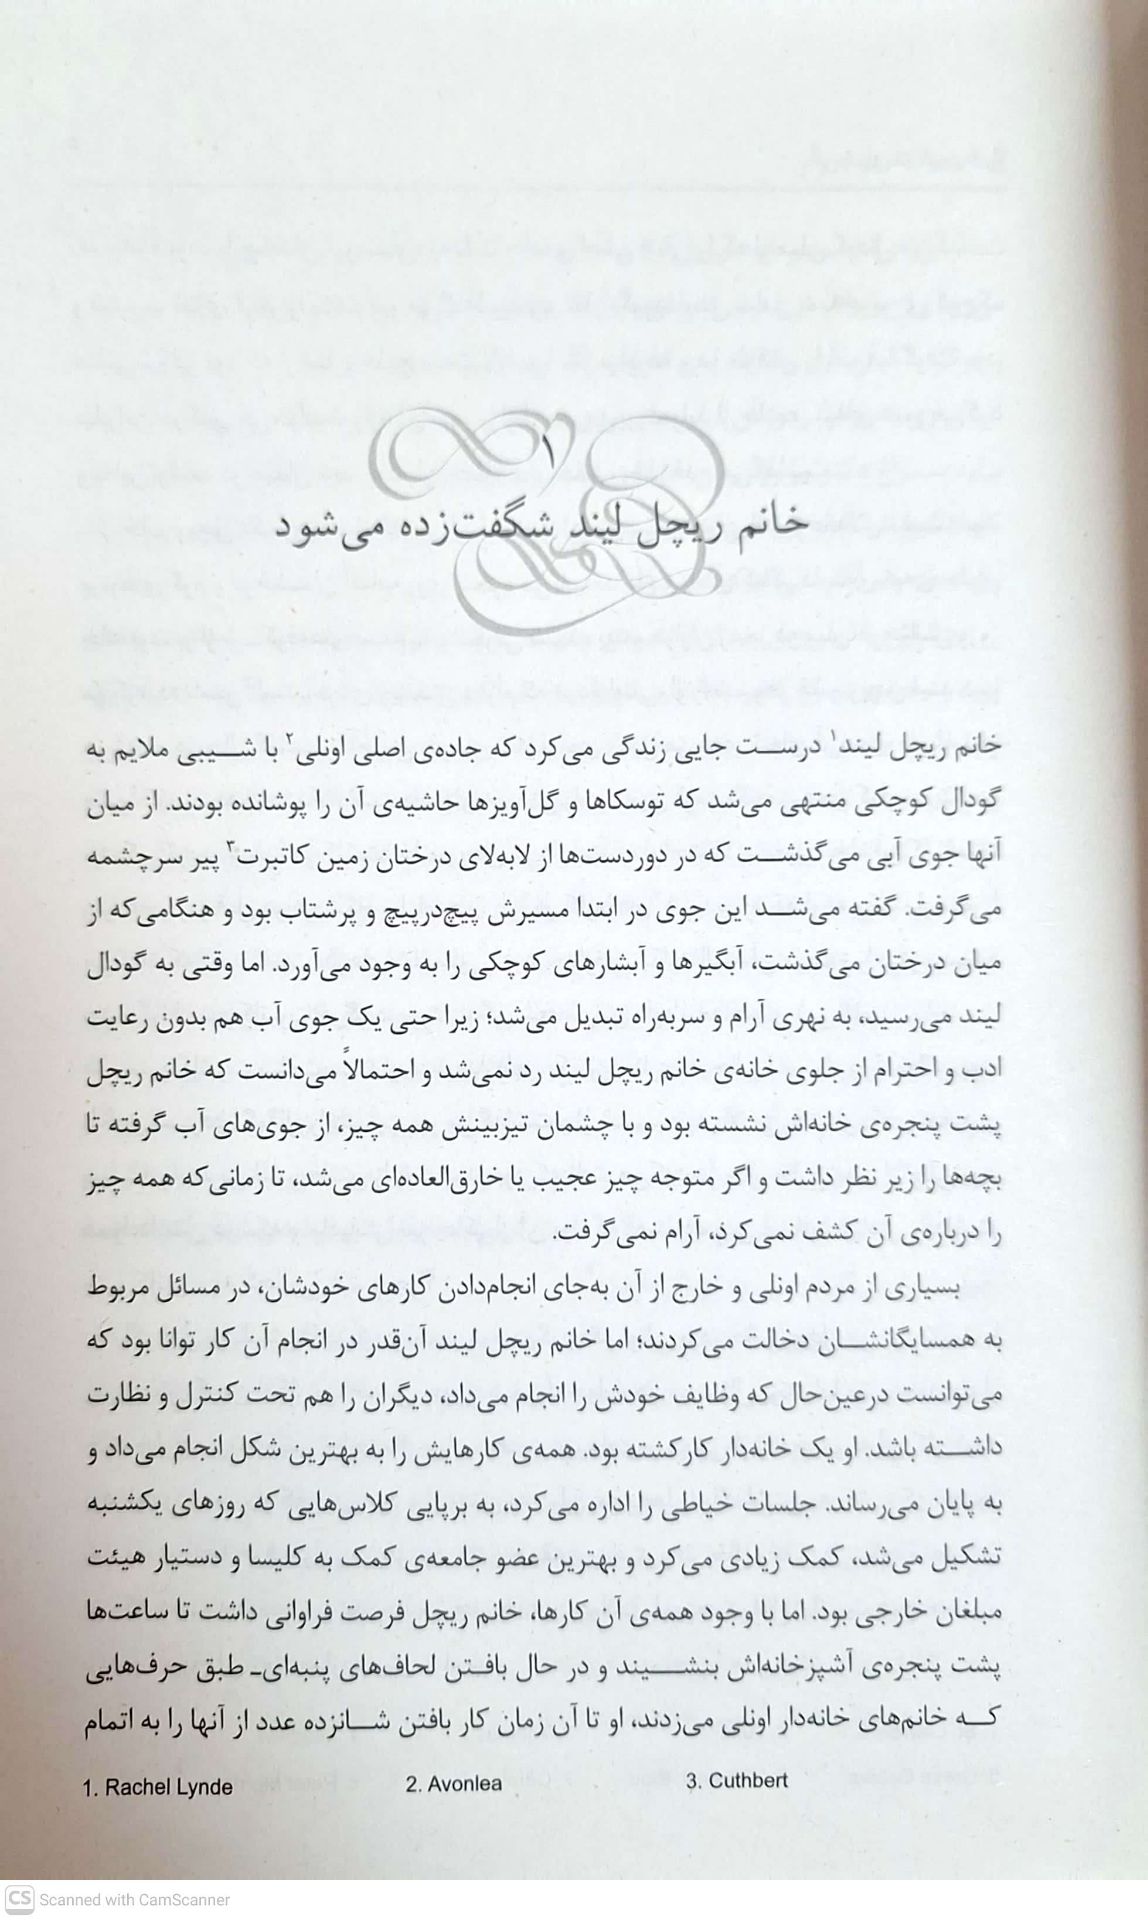 ۱
خانم ریچل لیند شگفت‌زده می‌شود
خانم ریچل لیند۱ درست جایی زندگی می‌کرد که جاده‌ی اصلی اونلی۲ با شیبی ملایم به
گودال کوچکی منتهی می‌شد که توسکاها و گل‌آویزها حاشیه‌ی آن را پوشانده بودند. از میان
آنها جوی آبی می‌گذشت که در دوردست‌ها از لابه‌لای درختان زمین کاتبرت۳ پیر سرچشمه
می‌گرفت. گفته می‌شد این جوی در ابتدا مسیرش پیچ‌درپیچ و پرشتاب بود و هنگامی‌که از
میان درختان می‌گذشت، آبگیرها و آبشارهای کوچکی را به وجود می‌آورد. اما وقتی به گودال
لیند می‌رسید، به نهری آرام و سربه‌راه تبدیل می‌شد؛ زیرا حتی یک جوی آب هم بدون رعایت
ادب و احترام از جلوی خانه‌ی خانم ریچل لیند رد نمی‌شد و احتمالاً می‌دانست که خانم ریچل
پشت پنجره‌ی خانه‌اش نشسته بود و با چشمان تیزبینش همه چیز، از جوی‌های آب گرفته تا
بچه‌ها را زیر نظر داشت و اگر متوجه چیز عجیب یا خارق‌العاده‌ای می‌شد، تا زمانی‌که همه چیز
را درباره‌ی آن کشف نمی‌کرد، آرام نمی‌گرفت.
بسیاری از مردم اونلی و خارج از آن به‌جای انجام‌دادن کارهای خودشان، در مسائل مربوط
به همسایگانشان دخالت می‌کردند؛ اما خانم ریچل لیند آن‌قدر در انجام آن کار توانا بود که
می‌توانست درعین‌حال که وظایف خودش را انجام می‌داد، دیگران را هم تحت کنترل و نظارت
داشته باشد. او یک خانه‌دار کارکشته بود. همه‌ی کارهایش را به بهترین شکل انجام می‌داد و
به پایان می‌رساند. جلسات خیاطی را اداره می‌کرد، به برپایی کلاس‌هایی که روزهای یکشنبه
تشکیل می‌شد، کمک زیادی می‌کرد و بهترین عضو جامعه‌ی کمک به کلیسا و دستیار هیئت
مبلغان خارجی بود. اما با وجود همه‌ی آن کارها، خانم ریچل فرصت فراوانی داشت تا ساعت‌ها
پشت پنجره‌ی آشپزخانه‌اش بنشیند و در حال بافتن لحاف‌های پنبه‌ای- طبق حرف‌هایی
که خانم‌های خانه‌دار اونلی می‌زدند، او تا آن زمان کار بافتن شانزده عدد از آنها را به اتمام
1. Rachel Lynde 2. Avonlea 3. Cuthbert
CS Scanned with CamScanner